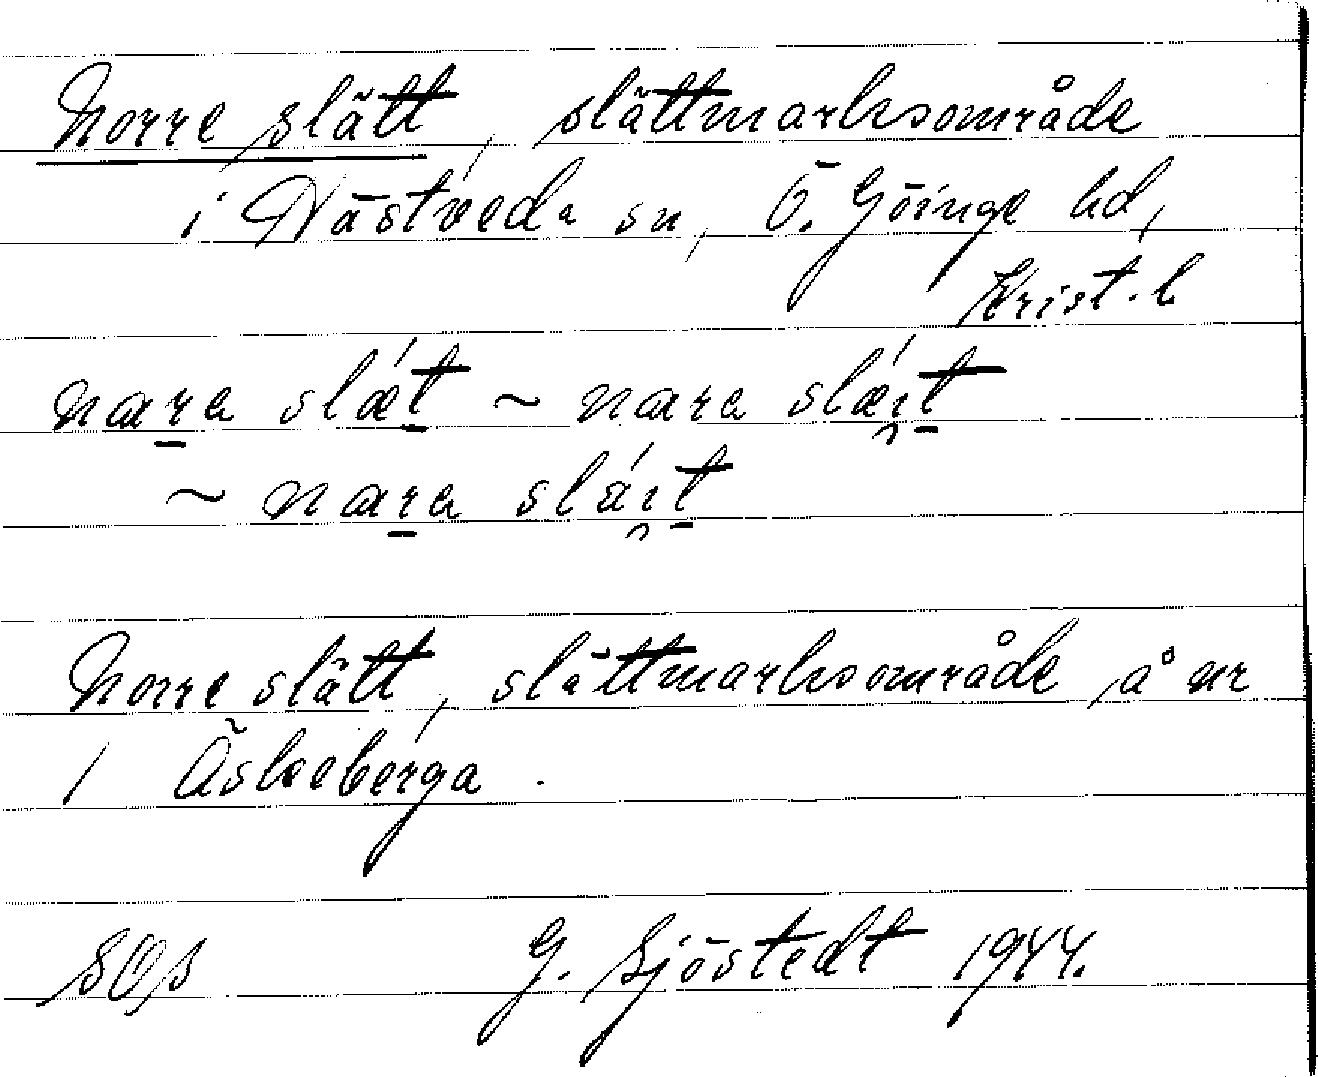 Norre slätt, slättmarksområde
i Västveda sn, Ö. Göinge hd,
Krist. l
nara slǽt ~ nara slǽi̯t
~ nara slái̯t
Norre slätt, slättmarksområde å nr
1 Äskeberga.
SOS G. Sjöstedt 1944.